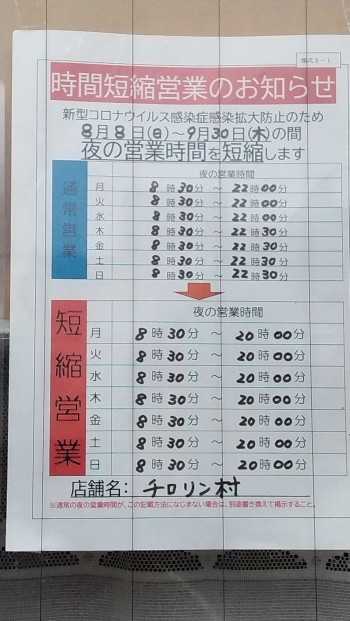 様式3-1
時間短縮営業のお知らせ
新型コロナウイルス感染症感染拡大防止のため
8月8日(日)~9月30日(木)の間
夜の営業時間を短縮します
通常営業
夜の営業時間
月 8時30分 ~ 22時00分
火 8時30分 ~ 22時00分
水 8時30分 ~ 22時00分
木 8時30分 ~ 22時30分
金 8時30分 ~ 22時30分
土 8時30分 ~ 22時30分
日 8時30分 ~ 22時30分
短縮営業
夜の営業時間
月 8時30分 ~ 20時00分
火 8時30分 ~ 20時00分
水 8時30分 ~ 20時00分
木 8時30分 ~ 20時00分
金 8時30分 ~ 20時00分
土 8時30分 ~ 20時00分
日 8時30分 ~ 20時00分
店舗名: チロリン村
※通常の夜の営業時間が、この記載方法になじまない場合は、別途書き換えて掲示すること。